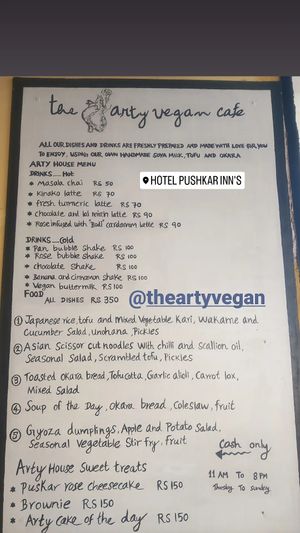 the arty vegan cafe
ALL OUR DISHES AND DRINKS ARE FRESHLY PREPARED AND MADE WITH LOVE FOR YOU
TO ENJOY, USING OUR OWN HANDMADE SOYA MILK, TOFU AND OKARA
ARTY HOUSE MENU
HOTEL PUSHKAR INN'S
DRINKS....Hot
* Masala chai RS 50
* Kinako latte RS 70
* fresh turmeric latte RS 70
* chocolate and latte RS 90
* Rose infused with cardamom latte RS 90
DRINKS....Cold
* Pan bubble shake RS 100
* Rose bubble shake RS 100
* chocolate shake RS 100
* Banana and cinnamon shake RS 100
* Vegan buttermilk RS 100
FOOD
ALL DISHES RS 350
@theartyvegan
① Japanese rice, tofu and mixed vegetable, Kari, Wakame and
Cucumber Salad, unohana, Pickles
② Asian Scissor cut noodles with chilli and scallion oil,
Seasonal Salad, Scrambled tofu, Pickles
③ Toasted okara bread, Tofucotta, Garlic aioli, Carrot lox,
Mixed Salad
④ Soup of the Day, okara bread, Coleslaw, fruit
⑤ Gyoza dumplings, Apple and Potato Salad,
Seasonal Vegetable Stir fry, fruit
Cash only
Arty House Sweet treats
11 AM To 8 PM
Thursday To Sunday
* Puskar rose cheesecake RS 150
* Brownie RS 150
* Arty cake of the day RS 150